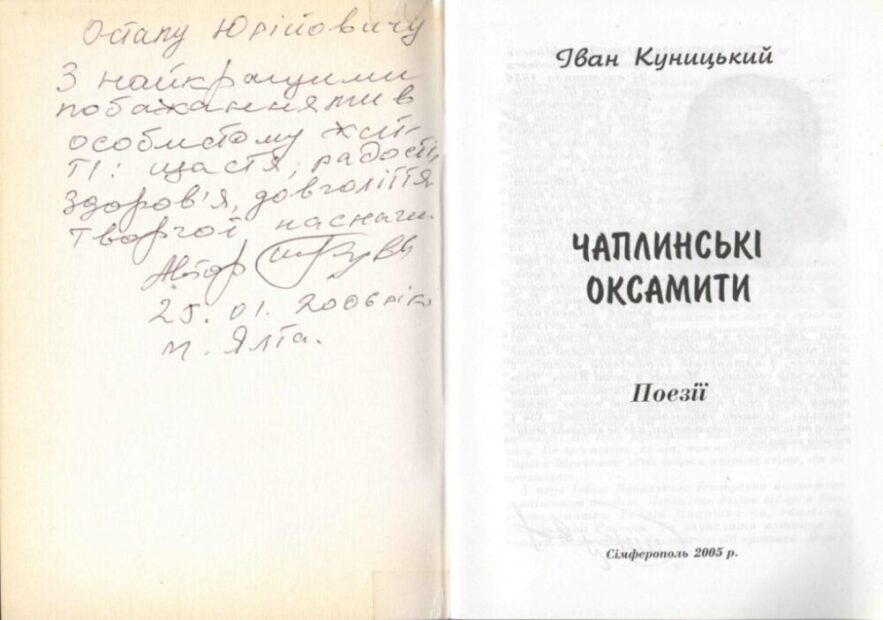 Остапу Юрійовичу
З найкращими
побажаннями в
особистому жит-
ті: щастя, радості,
здоров'я, довголіття
творчої наснаги.
Автор
25.01.2006 рік
м. Ялта.
Іван Куницький
ЧАПЛИНСЬКІ
ОКСАМИТИ
Поезії
Сімферополь 2005 р.